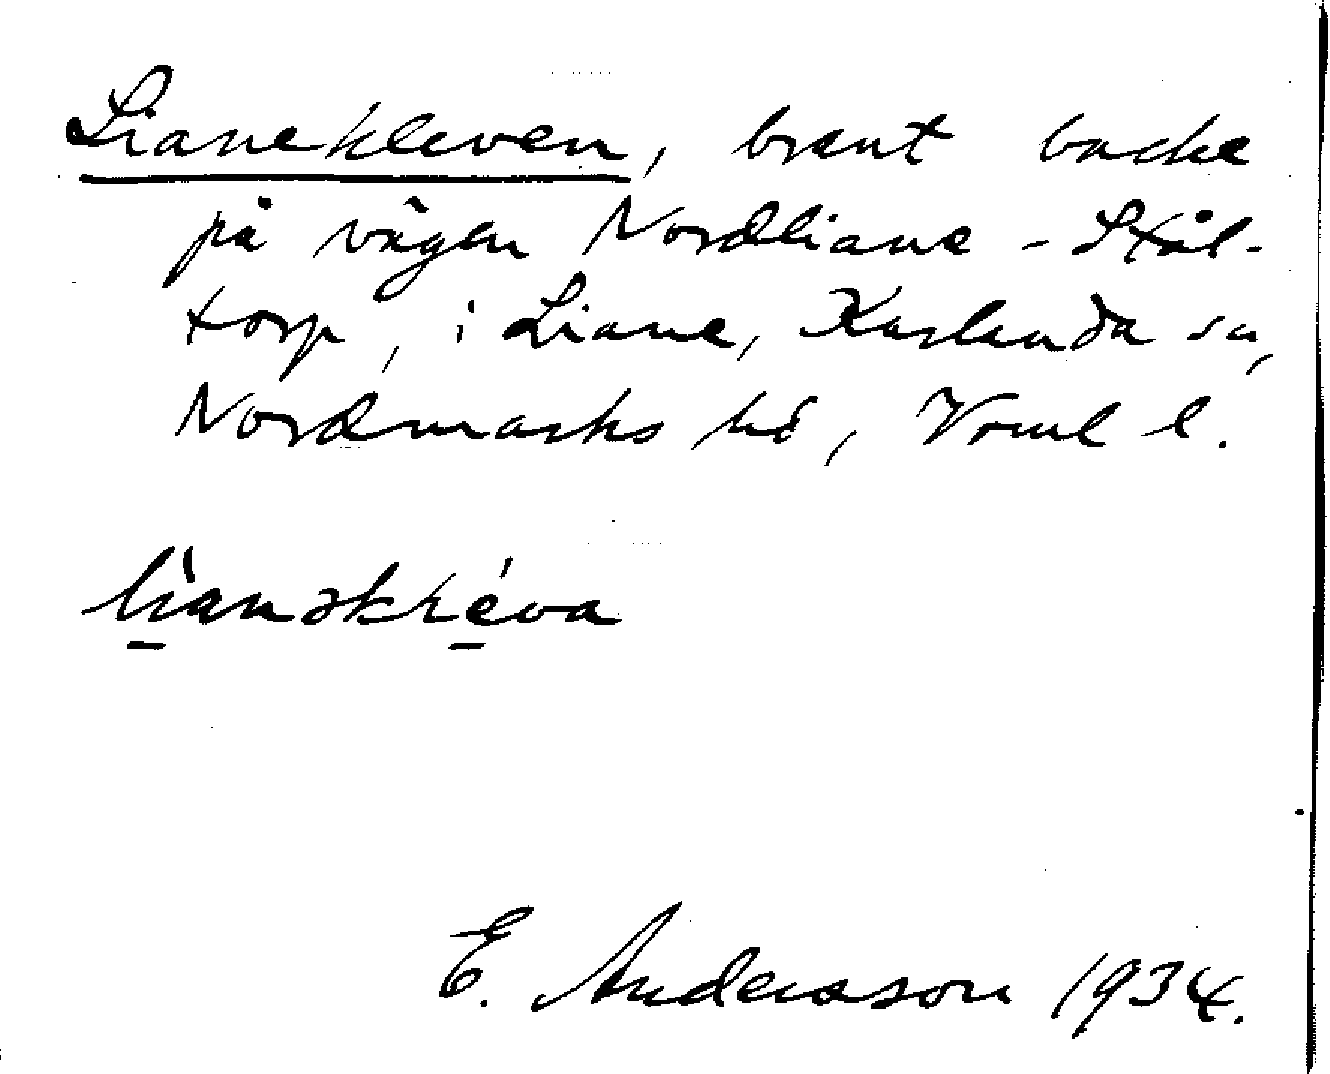 Lianekleven, brant backe
på vägen Nordliane - Stål-
torp, i Liane, Karlanda sn,
Nordmarks hd, Vrml l.
lìanəkléva
E. Andersson 1934.